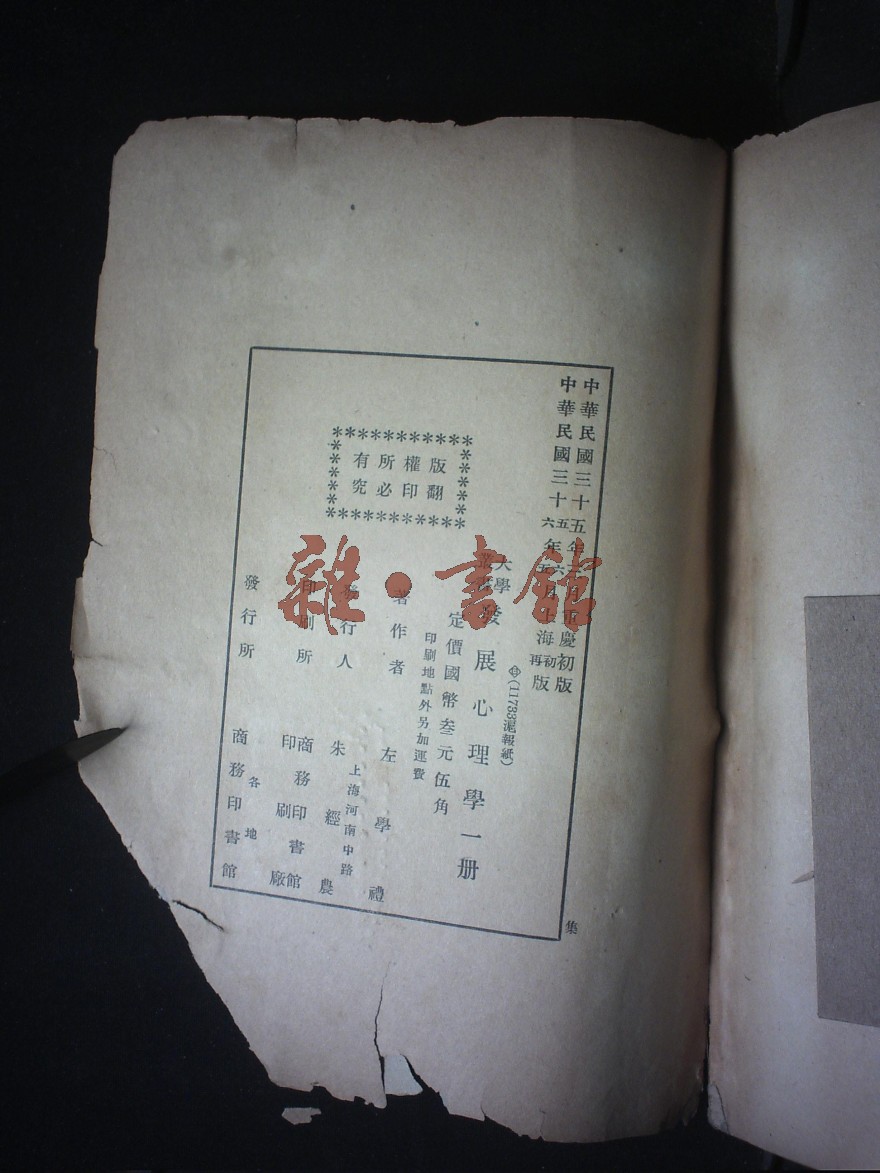 中華民國三十五年 月重慶初版
中華民國三十
五 六
六年五月上海
初
再
版
㊕(11733滬報紙)
大學
叢書
發展心理學一册
定價國幣叁元伍角
印刷地點外另加運費
著作者 左學禮
上海河南中路
發行人 朱經農
印刷所 商務印書館
印刷廠
各地
發行所 商務印書館
版權所有
翻印必究
集
雜·書館